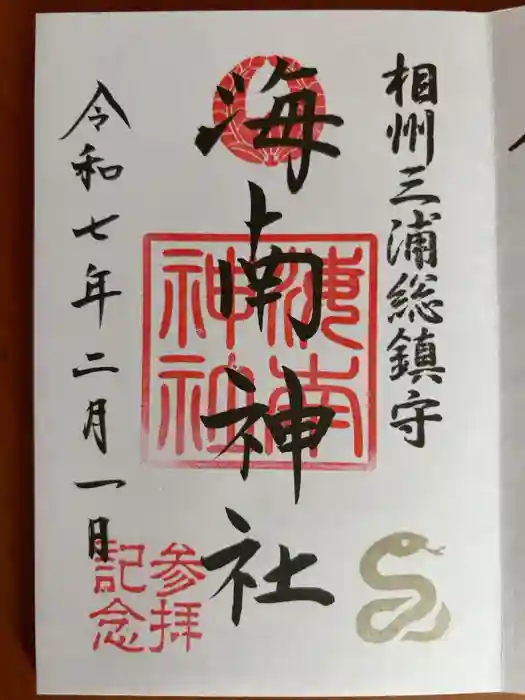 相州三浦総鎮守
海南神社
海南神社
令和七年二月一日
参拝記念